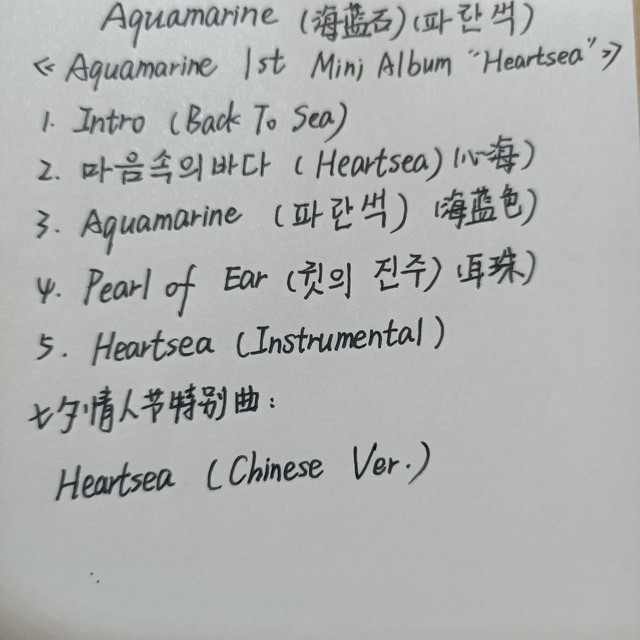 Aquamarine (海蓝石) (파란색)
≪ Aquamarine 1st Mini Album "Heartsea" ≫
1. Intro (Back To Sea)
2. 마음속의바다 (Heartsea) (心海)
3. Aquamarine (파란색) (海蓝色)
4. Pearl of Ear (귓의 진주) (耳珠)
5. Heartsea (Instrumental)
七夕情人节特别曲:
Heartsea (Chinese Ver.)